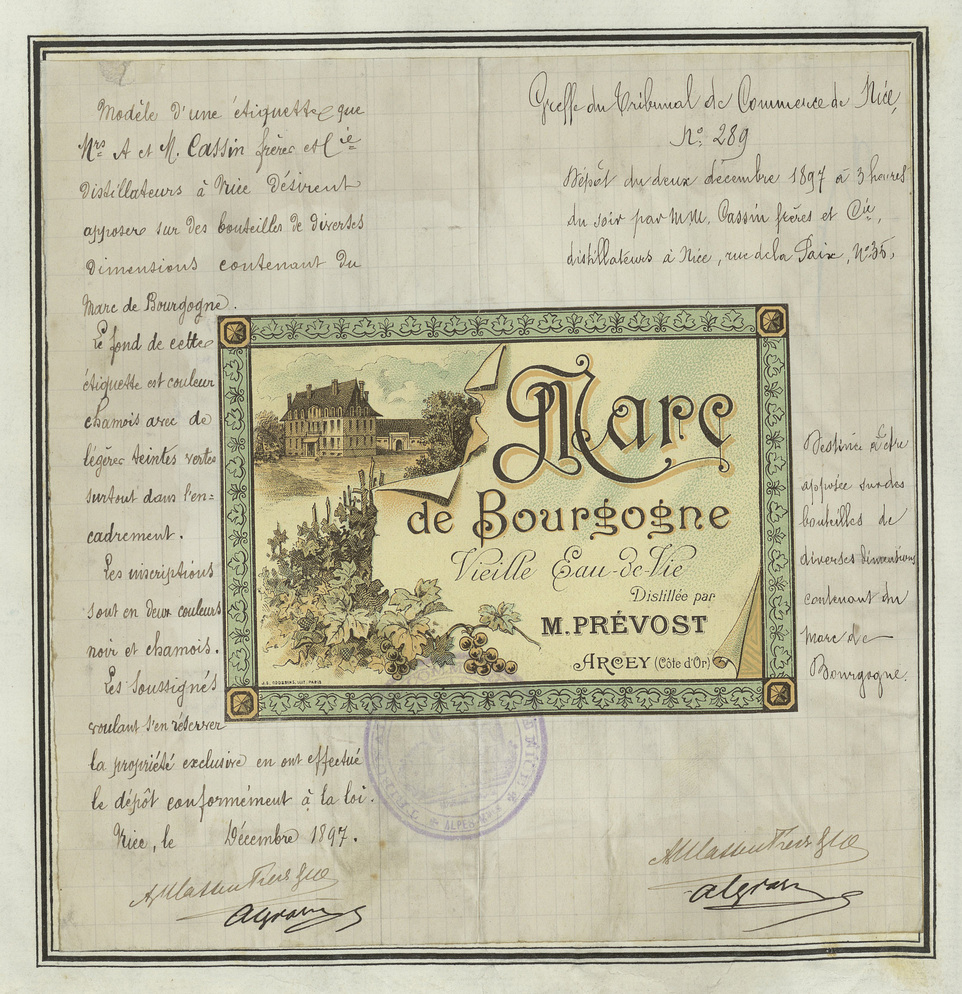 Modèle d'une étiquette que
Mrs A et M. Cassin frères et Cie
distillateurs à Nice désirent
apposer sur des bouteilles de diverses
dimensions contenant du
Marc de Bourgogne.
Le fond de cette
étiquette est couleur
chamois avec de
légères teintes vertes
surtout dans l'en=
cadrement.
Les inscriptions
sont en deux couleurs
noir et chamois.
Les Soussignés
voulant s'en réserver
la propriété exclusive en ont effectué
le dépôt conformément à la loi.
Nice, le Décembre 1897.
Greffe du Tribunal de Commerce de Nice,
No: 289
Dépôt du deux décembre 1897 à 3 heures
du soir par MM. Cassin frères et Cie,
distillateurs à Nice, rue de la Paix, No 35,
Marc
de Bourgogne
Vieille Eau-de-Vie
Distillée par
M. PRÉVOST
ARCEY (Côte d'Or)
Destinée à être
apposée sur des
bouteilles de
diverses dimensions
contenant du
Marc de
Bourgogne.